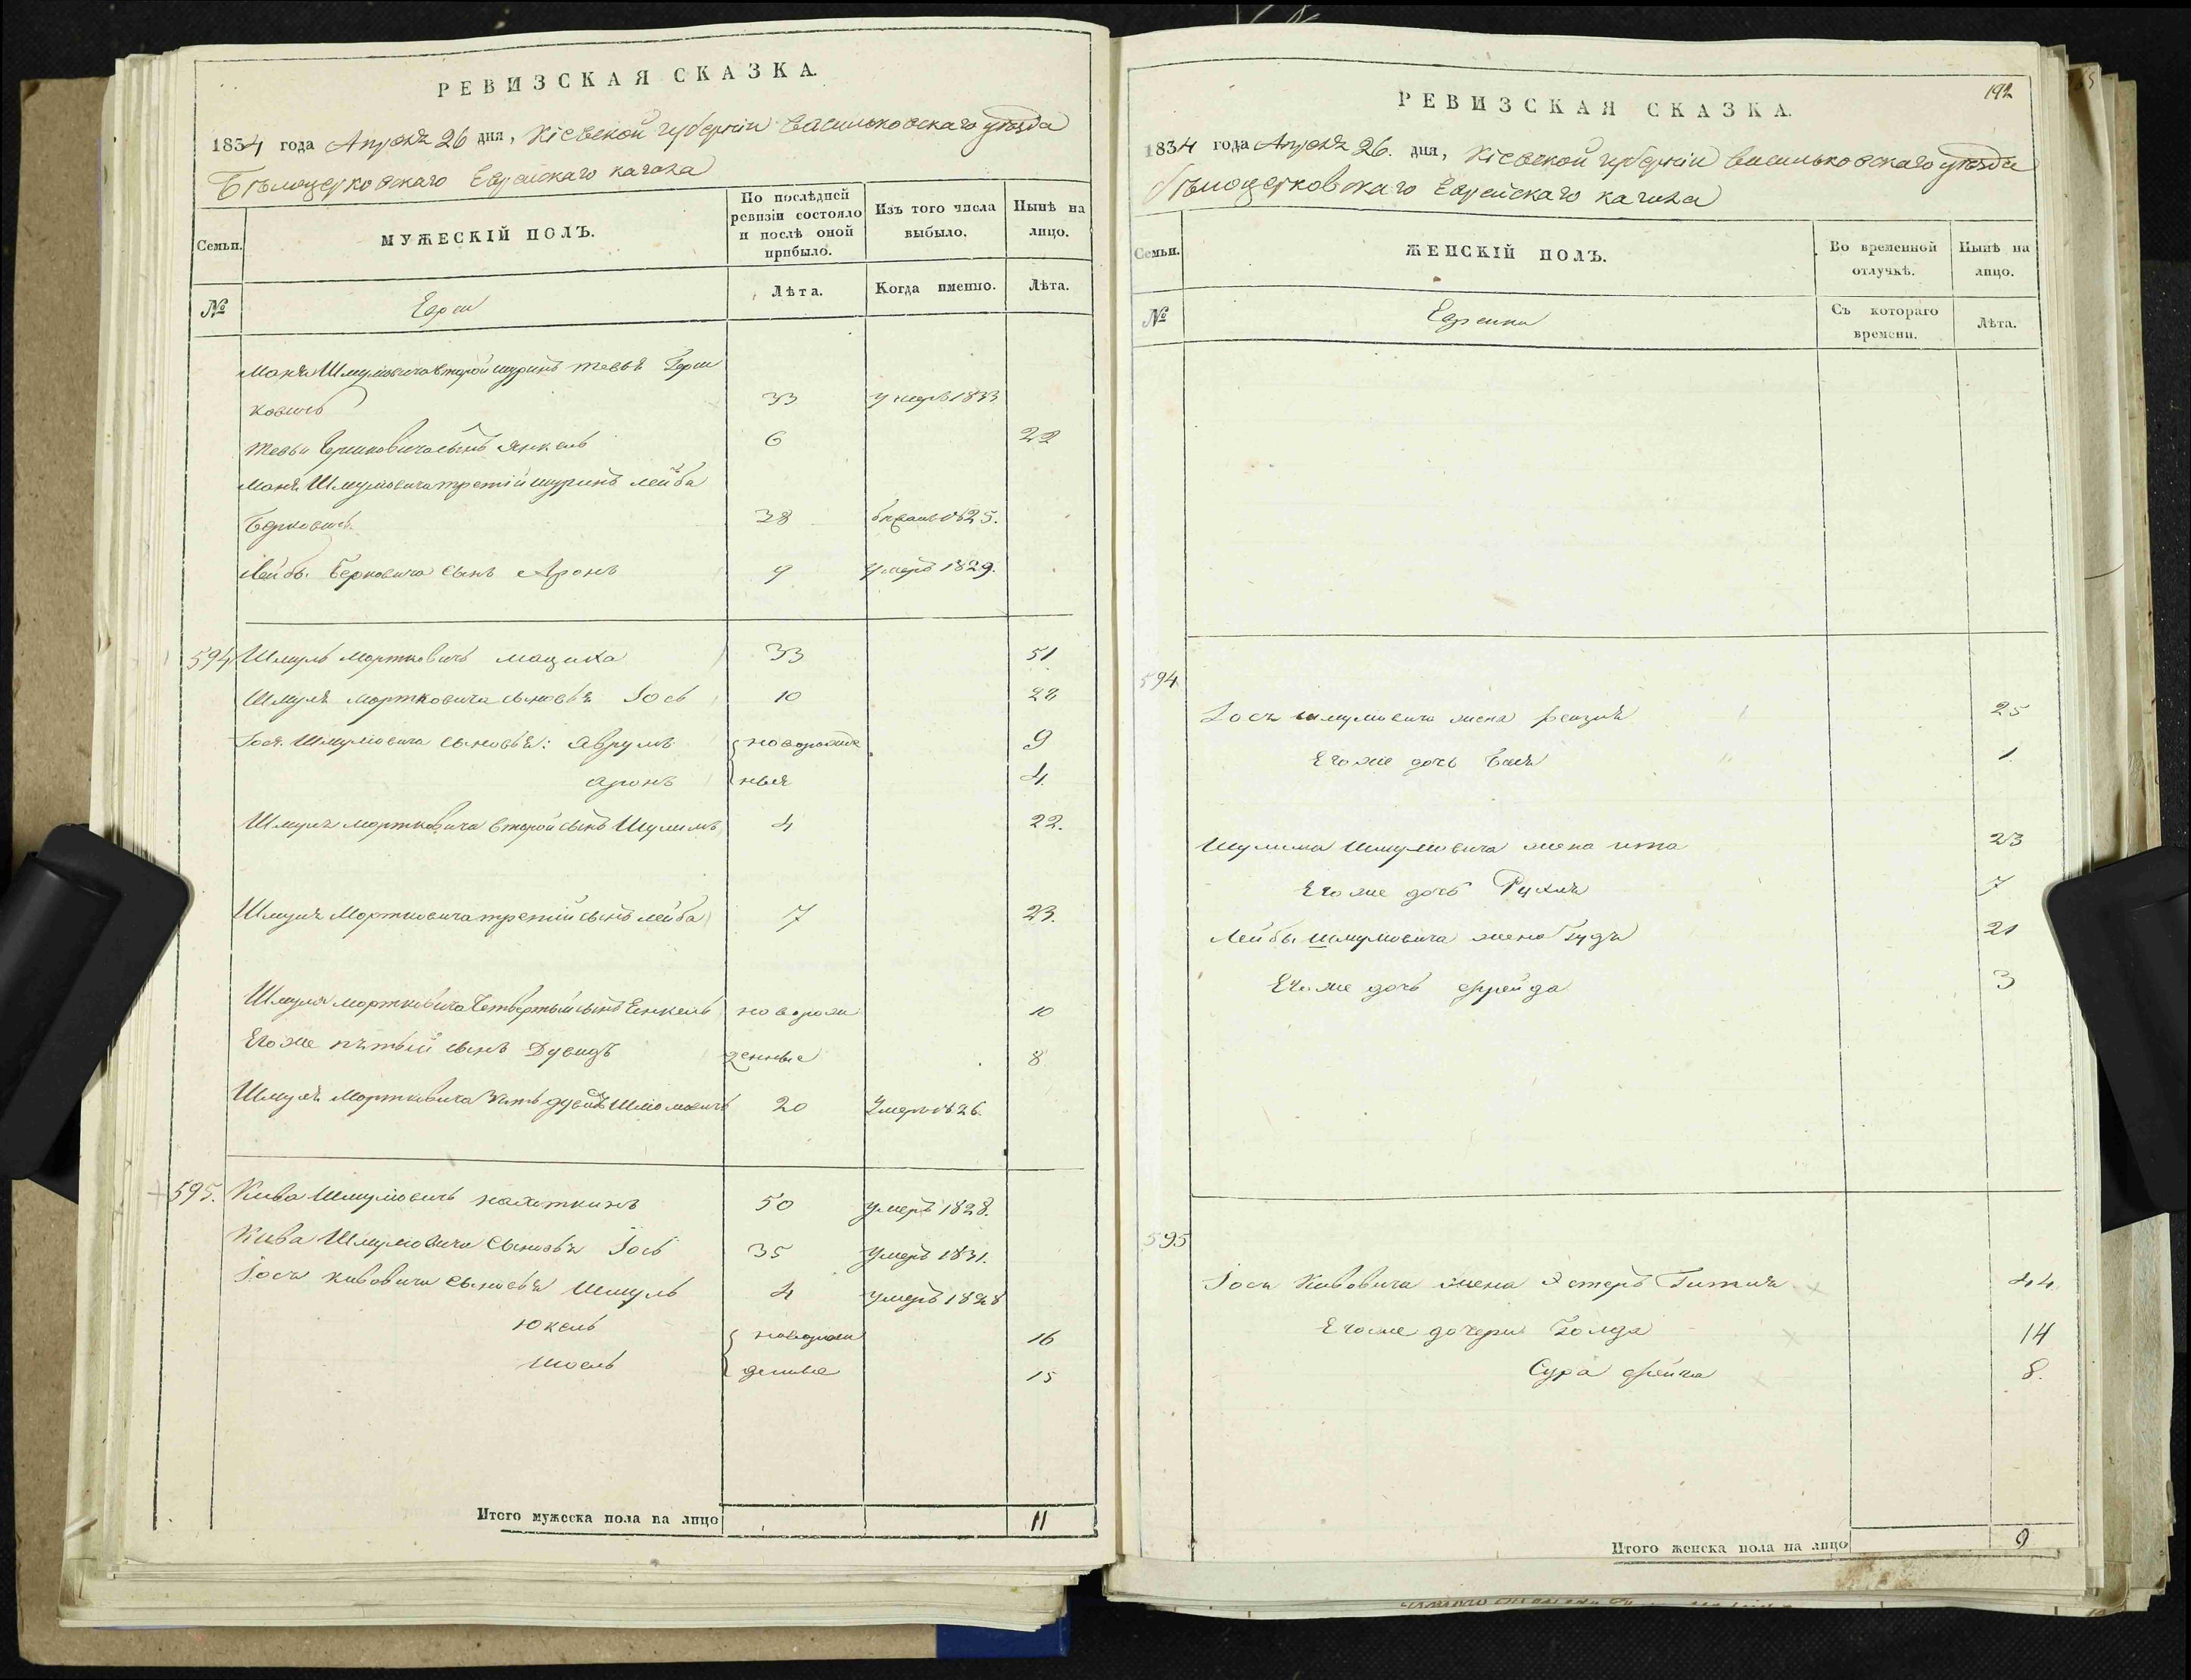 РЕВИЗСКАЯ СКАЗКА.
1834 года Апреля 26 дня, Кіевской губерніи Васильковскаго уѣзда
Бѣлоцерковскаго Еврейскаго кагала
Семьи.
МУЖЕСКІЙ ПОЛЪ.
По послѣдней ревизіи состояло и послѣ оной прибыло.
Изъ того числа выбыло.
Нынѣ на лицо.
№
Евреи
Лѣта.
Когда именно.
Лѣта.
Моня Шмулевича второй шуринъ тевья Герш
ковичъ 33 умеръ 1833
тевьи Гершковича сынъ Янкель 6 22
Моня Шмулевича третій шуринъ лейба
Берковичъ 38 1825.
Лейбы Берковича сынъ Аронъ 9 умеръ 1829.
594 Шмуль Мортковичъ мациха 33 51
Шмуля Мортковича сыновья Іось 10 28
Іося Шмулевича сыновья: Аврумъ новорожде 9
Аронъ ные 4
Шмуля Мортковича второй сынъ Шулимъ 4 22.
Шмуля Мортковича третій сынъ лейба 7 23.
Шмуля Мортковича Четвертый сынъ Енкель новорож 10
Его же пятый сынъ Дувидъ денные 8
Шмуля Мортковича зять дувидъ Шліомовичъ 20 Умеръ 1826.
595. Кива Шмулевичъ 50 умеръ 1828.
Кива Шмулевича Сыновья Іось 35 Умеръ 1831.
Іося Кивовича сыновья Шмуль 4 умеръ 1828
Юкель новорож 16
Шоель денные 15
Итого мужеска пола на лицо 11
192
РЕВИЗСКАЯ СКАЗКА.
1834 года Апреля 26. дня, Кіевской губерніи Васильковскаго уѣзда
Бѣлоцерковскаго Еврейскаго кагала
Семьи.
ЖЕНСКІЙ ПОЛЪ.
Во временной отлучкѣ.
Нынѣ на лицо.
№
Еврейки
Съ котораго времени.
Лѣта.
594
Іося шмулевича жена рейзя 25
Его же дочь Бася 1
Шулима Шмулевича жена ита 23
Его же дочь Рухля 7
Лейбы Шмулевича жена Гудя 21
Его же дочь фрейда 3
595
Іося Кивовича жена Эстеръ Гитля 44
Его же дочери Голда 14
Сура фейга 8.
Итого женска пола на лицо 9